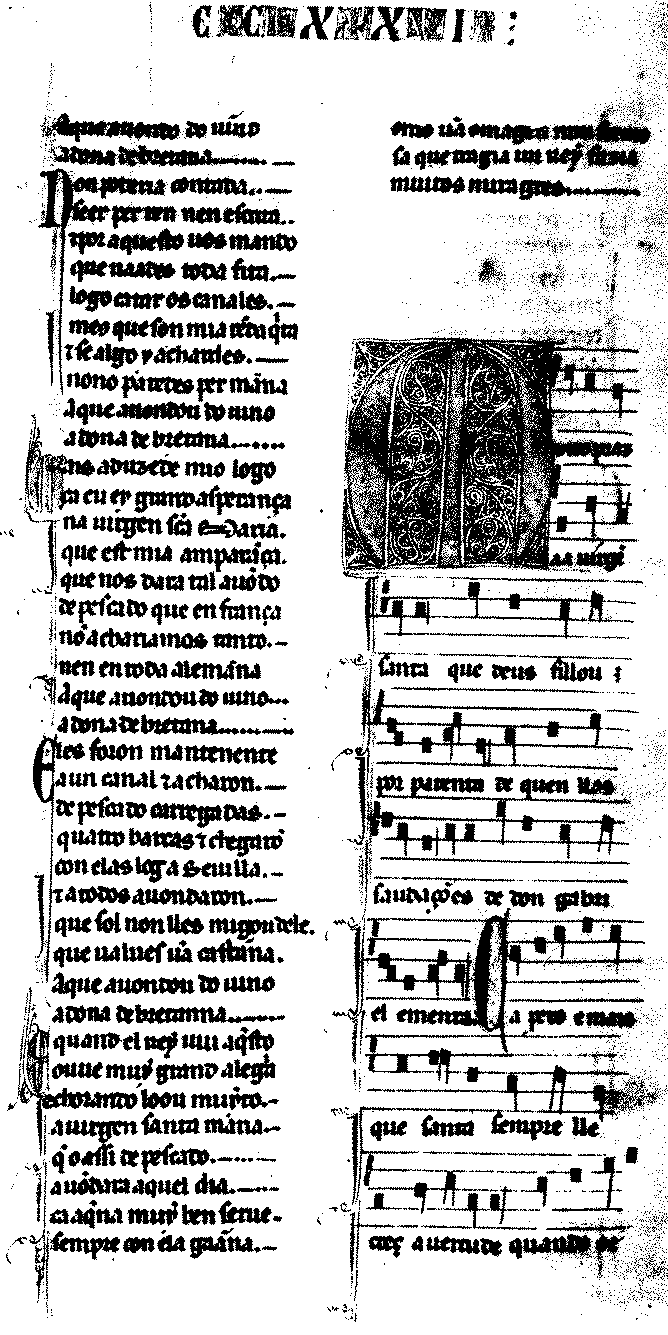 CCXXII:
Aque auondo do uino
a dona de bretanna
Non poteria contada
seer per ren nen escrita
τ por aquesto uos mando
que uaades toda fita
logo catar os canales
meos que son mia rēda q̇ta
τ se algo y achardes
nono paretes per mãna
Aque auondou do uino
a dona de bretanna
ca eu ey grand asperança
na uirgen sc̃a Maria.
que est mia amparança.
que nos dara tal auōdo
de pescado que en frança
nō achariamos tanto.
nen en toda alemãna
Aque auondou do uino
a dona de bretanna
Eles foron mantenente
a un canal τ acharon.
de pescado carregadas.
quatro barcas τ chegarō
con elas log a Seuilla.
τ a todos auondaron.
que sol non lles mingou dele.
que ualuess ũa castãna.
Aque auondou do uino
a dona de bretanna
E quand el rey uiu aq̇sto
ouue muy grand alegria
e chorando loou muyto.
a uirgen santa maria.
q̇ assi de pescado.
auōdara aquel dia.
ca aq̇na muy ben serue
sempre con ela gaãna.
como ũa omagen
sa que tragia un rey fazia
muitos miragres.
M
aa uirgē
santa que deus fillou
por parenta de quen lles
saudações de don gabri
el ementa. Ca pero e mais
que santa sempre lle
crez a uertude quando